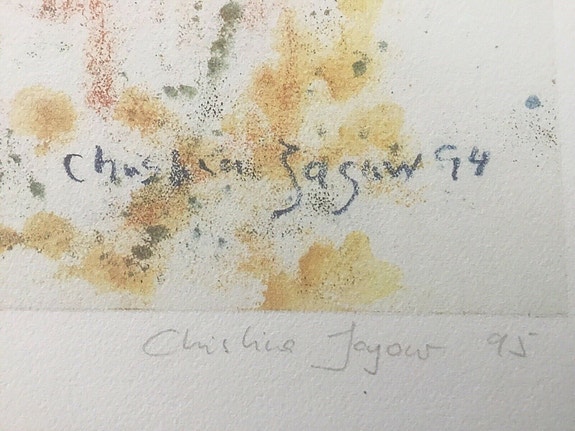 Christina Jagow 94
Christina Jagow 95